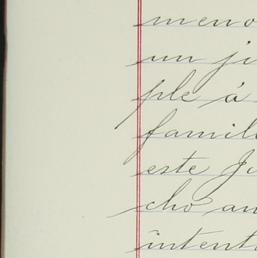 meno
un ji
ple á
famili
este Ju
cho an
intent